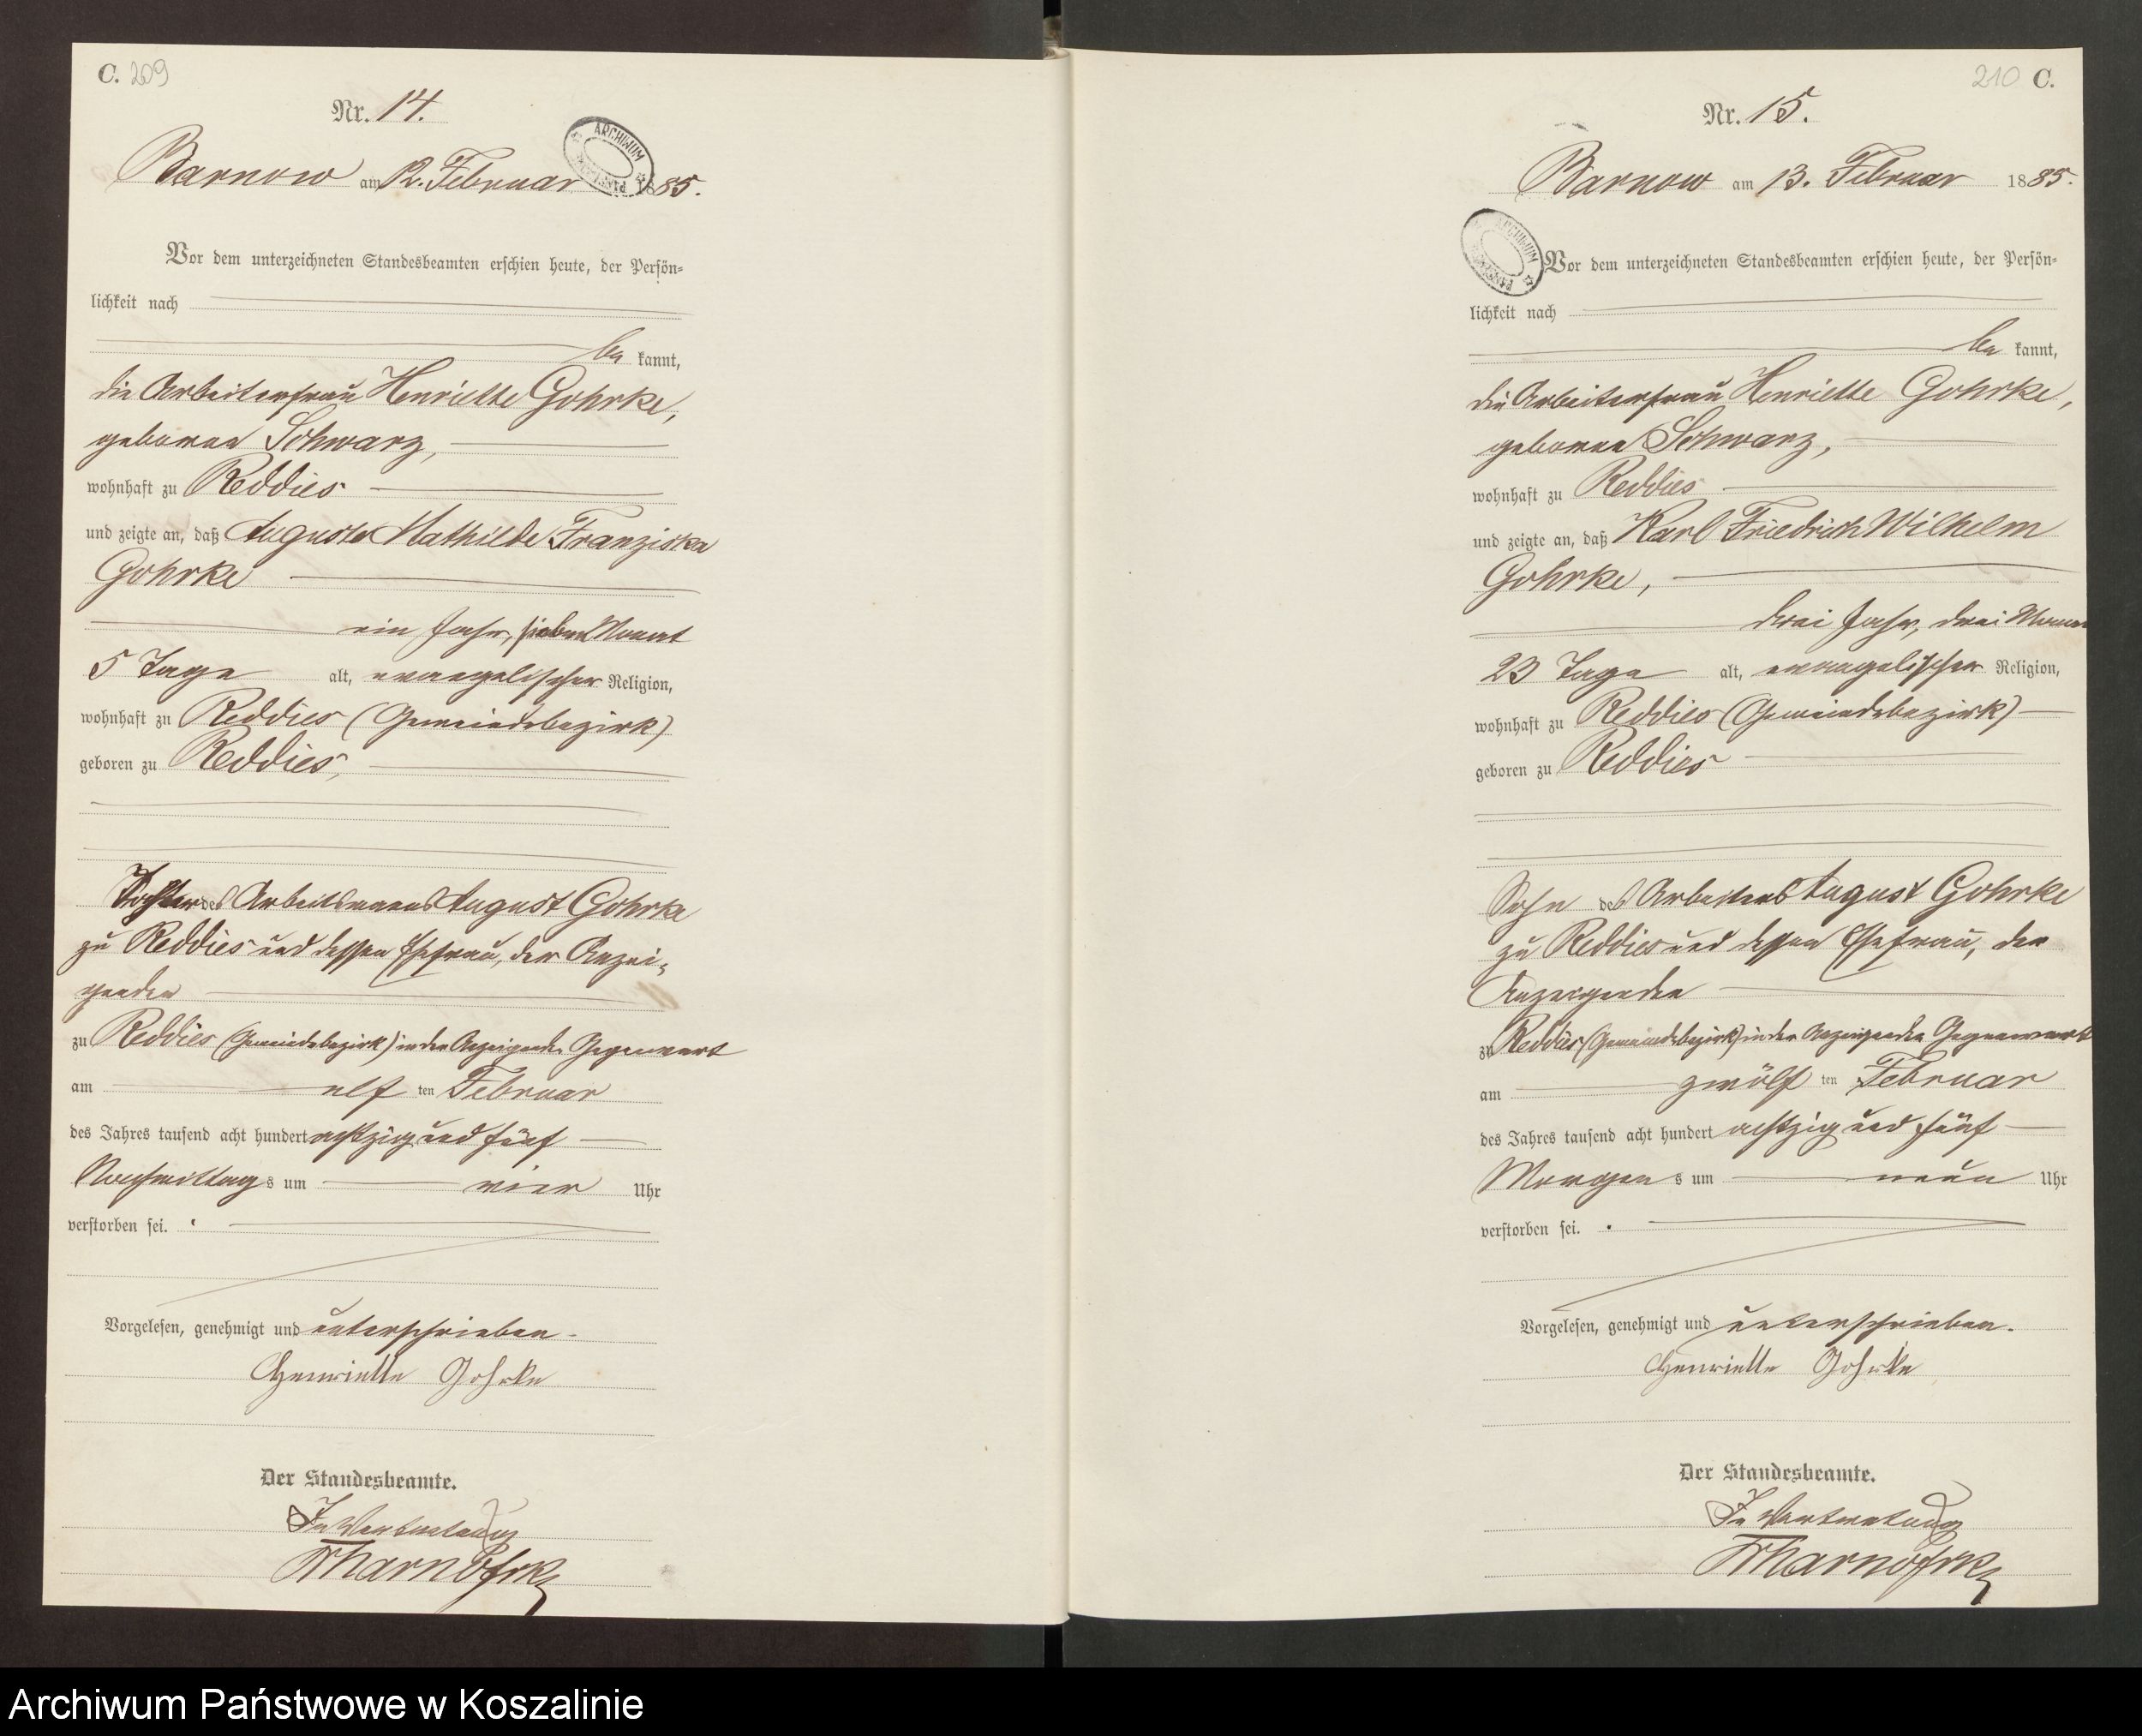 C. 209
Nr. 14.
ARCHIWUM
Barnow am 12. Februar 1885.
Vor dem unterzeichneten Standesbeamten erschien heute, der Persön=
lichkeit nach
be kannt,
die Arbeiterfrau Henriette Gohrke,
geborene Schwarz,
wohnhaft zu Reddies
und zeigte an, daß Auguste Mathilde Franziska
Gohrke
ein Jahr, sieben Monat
5 Tage alt, evangelischer Religion,
wohnhaft zu Reddies (Gemeindebezirk)
geboren zu Reddies,
Tochter des Arbeitsmanns August Gohrke
zu Reddies und dessen Ehefrau, der Anzei=
genden
zu Reddies (Gemeindebezirk) in der Anzeigenden Gegenwart
am elf ten Februar
des Jahres tausend acht hundert achtzig und fünf
Nachmittag s um vier Uhr
verstorben sei.
Vorgelesen, genehmigt und unterschrieben.
Henriette Gohrke
Der Standesbeamte.
In Vertretung
210 C.
Nr. 15.
Barnow am 13. Februar 1885.
ARCHIWUM
Vor dem unterzeichneten Standesbeamten erschien heute, der Persön=
lichkeit nach
be kannt,
die Arbeiterfrau Henriette Gohrke,
geborene Schwarz,
wohnhaft zu Reddies
und zeigte an, daß Karl Friedrich Wilhelm
Gohrke,
drei Jahr, drei Monat
23 Tage alt, evangelischer Religion,
wohnhaft zu Reddies (Gemeindebezirk)
geboren zu Reddies
Sohn des Arbeiters August Gohrke
zu Reddies und dessen Ehefrau, der
Anzeigenden
zu Reddies (Gemeindebezirk) in der Anzeigenden Gegenwart
am zwölf ten Februar
des Jahres tausend acht hundert achtzig und fünf
Morgen s um neun Uhr
verstorben sei.
Vorgelesen, genehmigt und unterschrieben.
Henriette Gohrke
Der Standesbeamte.
In Vertretung
Archiwum Państwowe w Koszalinie